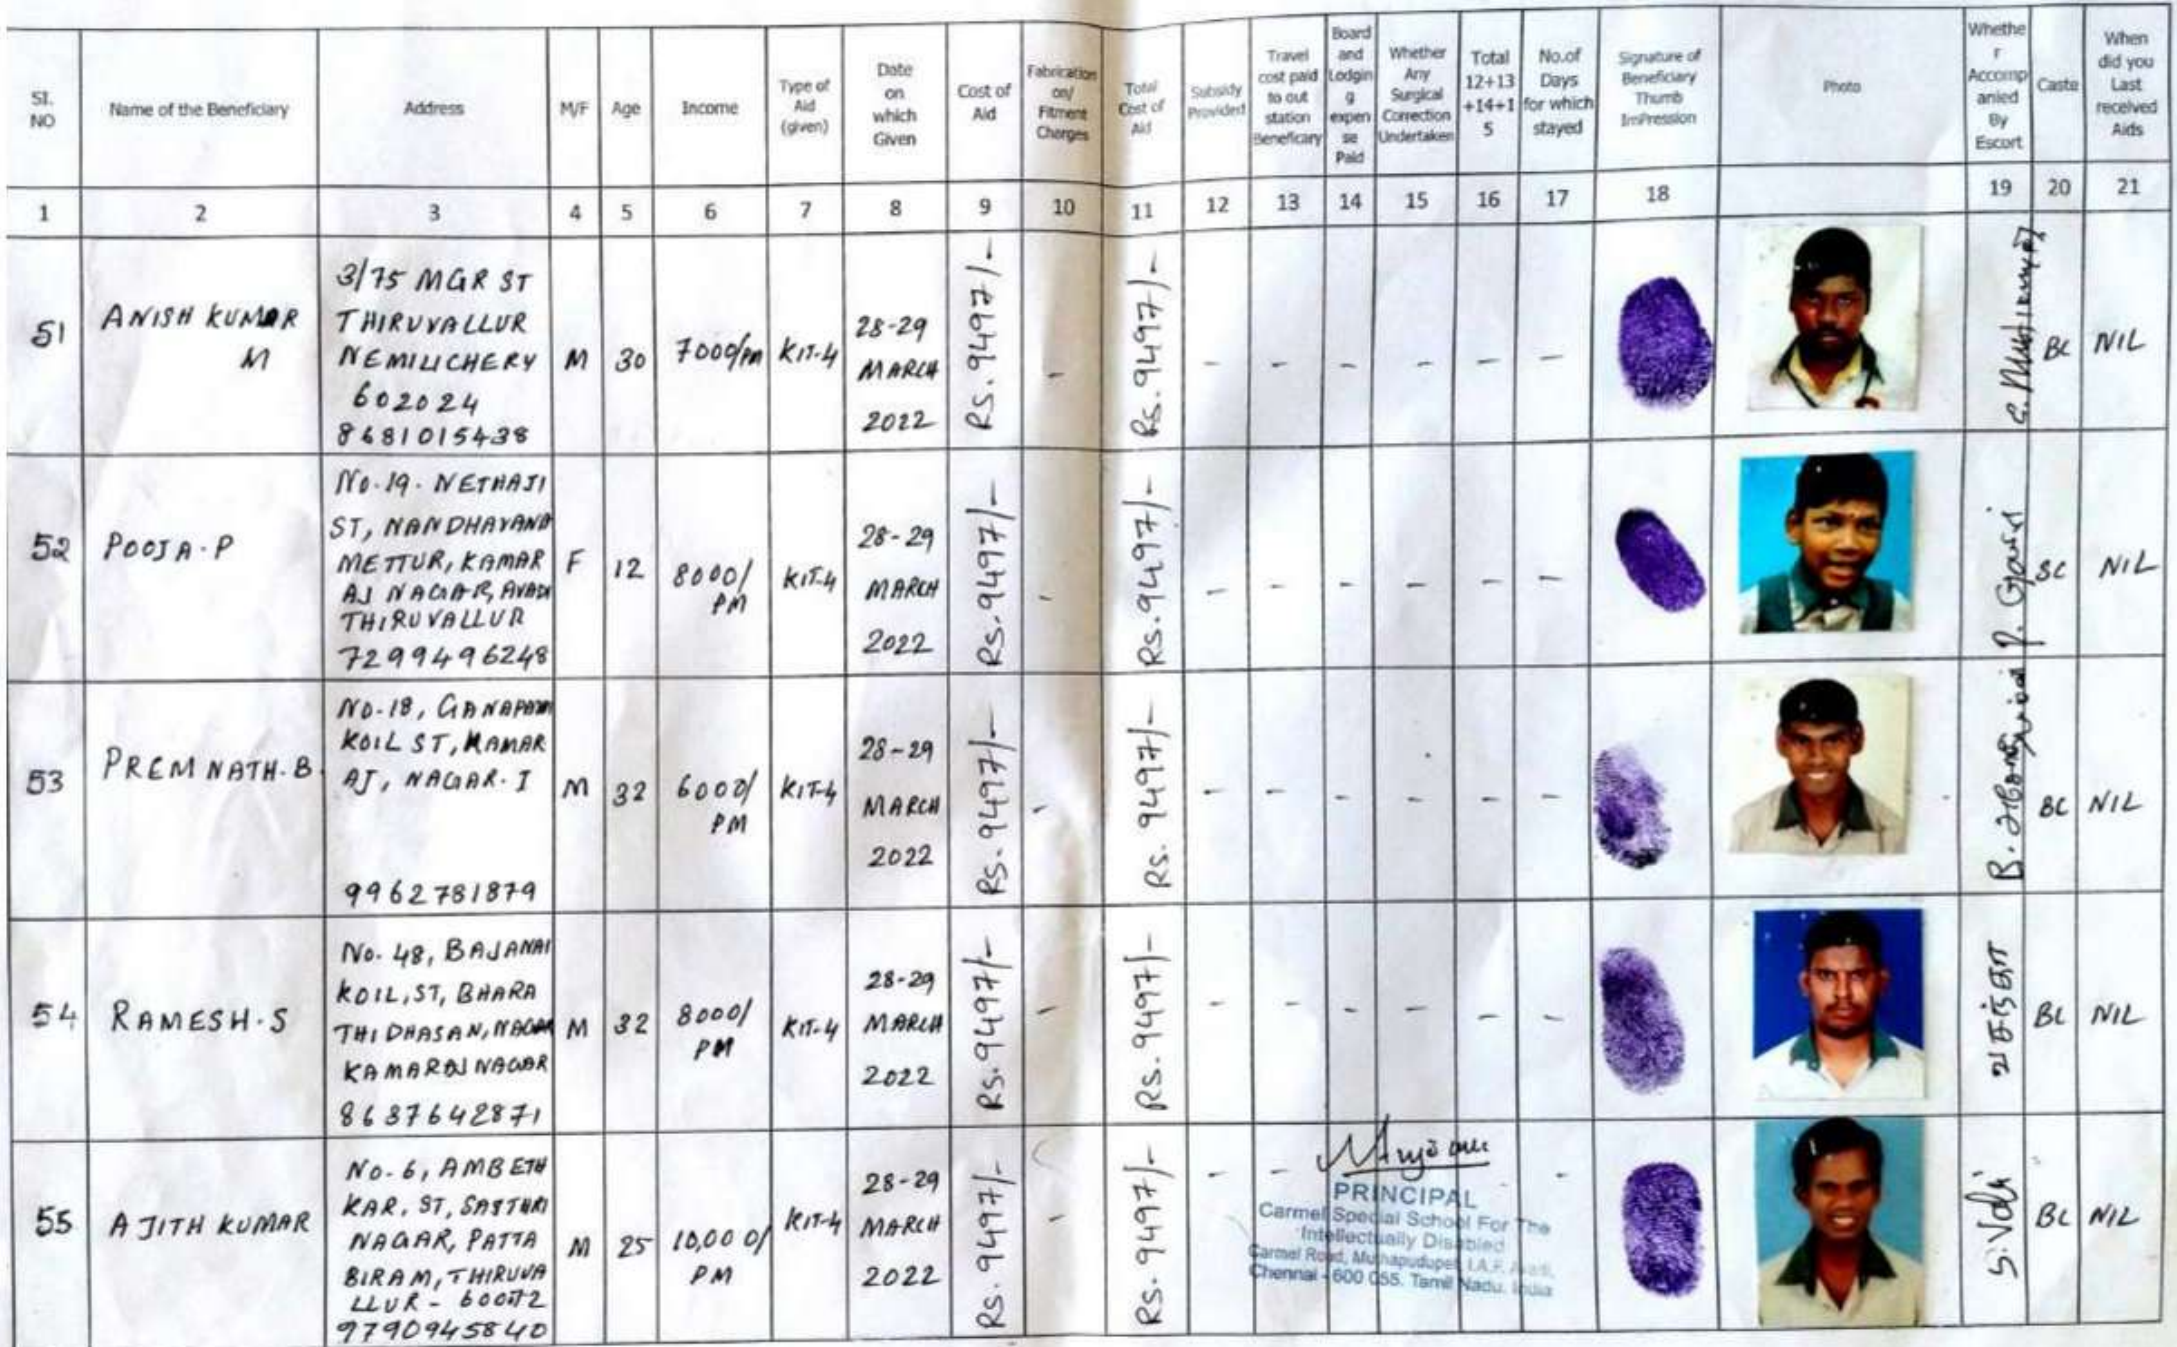 SI. NO
Name of the Beneficiary
Address
M/F
Age
Income
Type of Aid (given)
Date on which Given
Cost of Aid
Fabrication on/ Fitment Charges
Total Cost of Aid
Subsidy Provided
Travel cost paid to out station Beneficary
Board and Lodgin g expen se Paid
Whether Any Surgical Correction Undertaken
Total 12+13 +14+1 5
No.of Days for which stayed
Signature of Beneficiary Thumb ImPression
Photo
Whethe r Accomp anied By Escort
Caste
When did you Last received Aids
1 2 3 4 5 6 7 8 9 10 11 12 13 14 15 16 17 18 19 20 21
51
ANISH KUMAR
M
3/75 MGR ST
THIRUVALLUR
NEMILICHERY
602024
8681015438
M
30
7000/PM
KIT-4
28-29
MARCH
2022
Rs.9497/-
-
Rs.9497/-
- - - - - -
BC
NIL
52
POOJA.P
No.19. NETHAJI
ST, NANDHAVANA
METTUR, KAMAR
AJ NAGAR, AVADI
THIRUVALLUR
7299496248
F
12
8000/
PM
KIT-4
28-29
MARCH
2022
Rs.9497/-
-
Rs.9497/-
- - - - - -
P. Gowri
SC
NIL
53
PREMNATH.B
NO-18,
KOIL ST, KAMAR
AJ, NAGAR. I
9962781879
M
32
6000/
PM
KIT-4
28-29
MARCH
2022
Rs.9497/-
-
Rs. 9497/-
- - - - - -
B.
BC
NIL
54
RAMESH.S
No. 48, BAJANAI
KOIL, ST, BHARA
THIDHASAN, NAGAR
KAMARAJ NAGAR
8637642871
M
32
8000/
PM
KIT-4
28-29
MARCH
2022
Rs.9497/-
-
Rs.9497/-
- - - - - -
வசந்தா
BC
NIL
55
AJITH KUMAR
No-6, AMBETH
KAR, ST, SASTHRI
NAGAR, PATTA
BIRAM, THIRUVA
LLUR -
9790945840
M
25
10,000/
PM
KIT-4
28-29
MARCH
2022
Rs. 9497/-
-
Rs. 9497/-
- - -
PRINCIPAL
Carmel Special School For The
Intellectually Disabled
Carmel Road, Muthapudupet, I.A.F. Avadi,
Chennai - 600 055. Tamil Nadu. India
S. Valli
BC
NIL